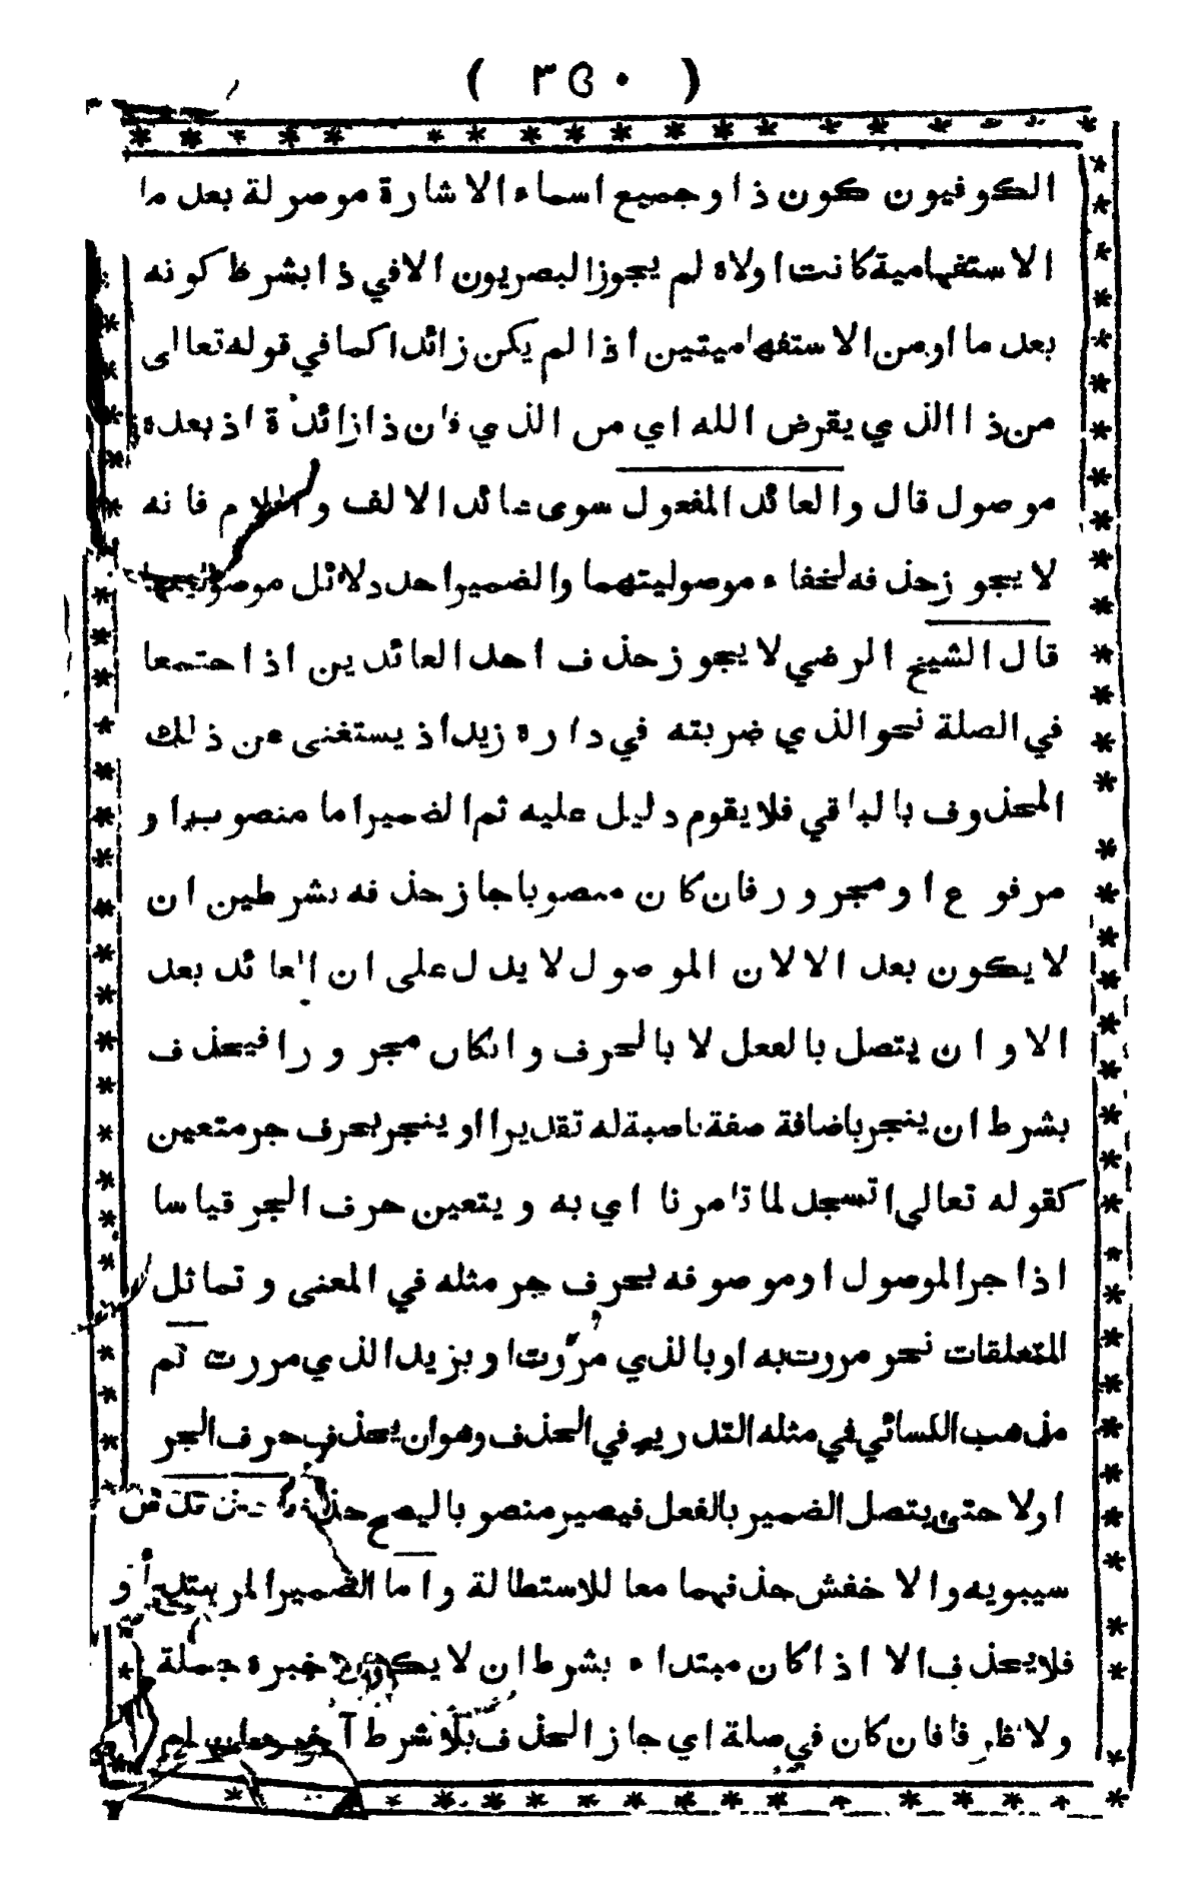 ( ٣٥٠ )
الكوفيون كون ذا وجميع اسماء الاشارة موصولة بعد ما
الاستفهامية كانت اولاه لم يجوز البصريون الا في ذا بشرط كونه
بعد ما او من الاستفهاميتين اذا لم يكن زائدا كما في قوله تعالى
من ذا الذي يقرض الله اي من الذي فان ذا زائدة اذ بعده
موصول قال والعائد المفعول سوى عائد الالف واللام فانه
لا يجوز حذفه لخفاء موصوليتهما والضمير احد دلائل موصوليتهما
قال الشيخ الرضي لا يجوز حذف احد العائدين اذا اجتمعا
في الصلة نحو الذي ضربته في داره زيد اذ يستغنى عن ذلك
المحذوف بالباقي فلا يقوم دليل عليه ثم الضمير اما منصوب او
مرفوع او مجرور فان كان منصوبا جاز حذفه بشرطين ان
لا يكون بعد الا لان الموصول لا يدل على ان العائد بعد
الا وان يتصل بالفعل لا بالحرف وانكان مجرورا فيحذف
بشرط ان ينجر باضافة صفة ناصبة له تقديرا او ينجر بحرف جر متعين
كقوله تعالى اتسجد لما تامرنا اي به ويتعين حرف الجر قياسا
اذا جر الموصول او موصوفه بحرف جر مثله في المعنى وتماثل
المتعلقات نحو مررت به او بالذي مررت او بزيد الذي مررت ثم
مذهب الكسائي في مثله التدريج في الحذف وهو ان يحذف حرف الجر
اولا حتى يتصل الضمير بالفعل فيصير منصوبا ليصح حذفه
سيبويه والاخفش حذفهما معا للاستطالة واما الضمير المر
فلا يحذف الا اذا كان مبتداء بشرط ان لا يكون خبره جملة
ولا ظرفا فان كان في صلة اي جاز الحذف بلا شرط آخر